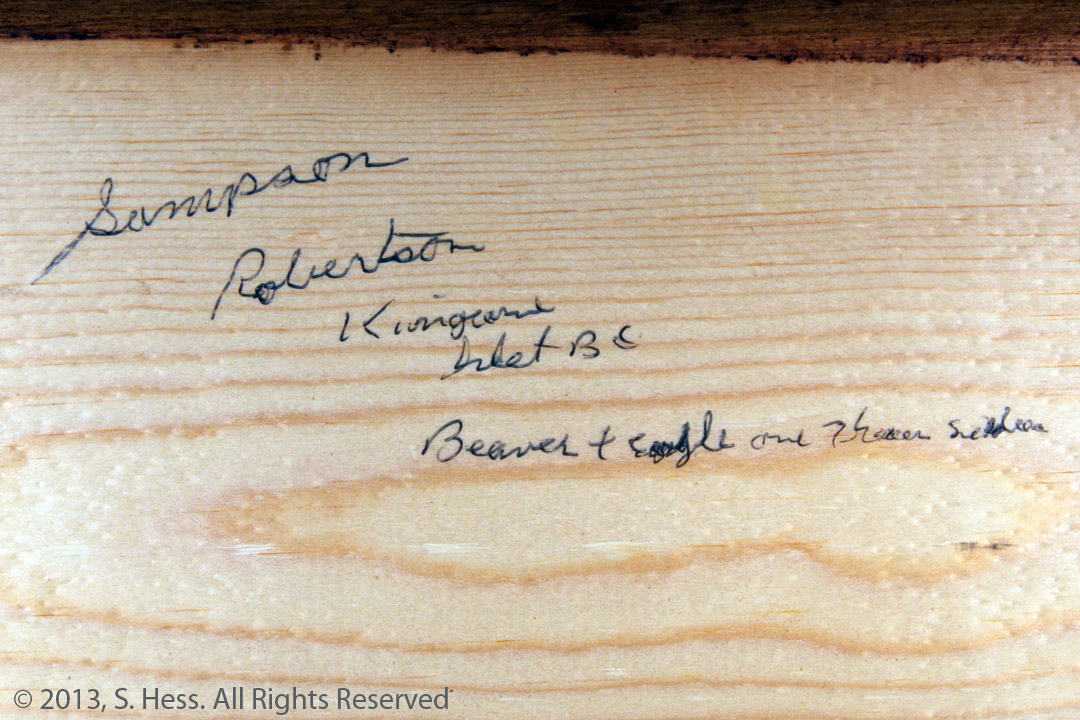 Sampson
Robertson
Kingcome
Inlet BC
Beaver + eagle one
© 2013, S. Hess. All Rights Reserved